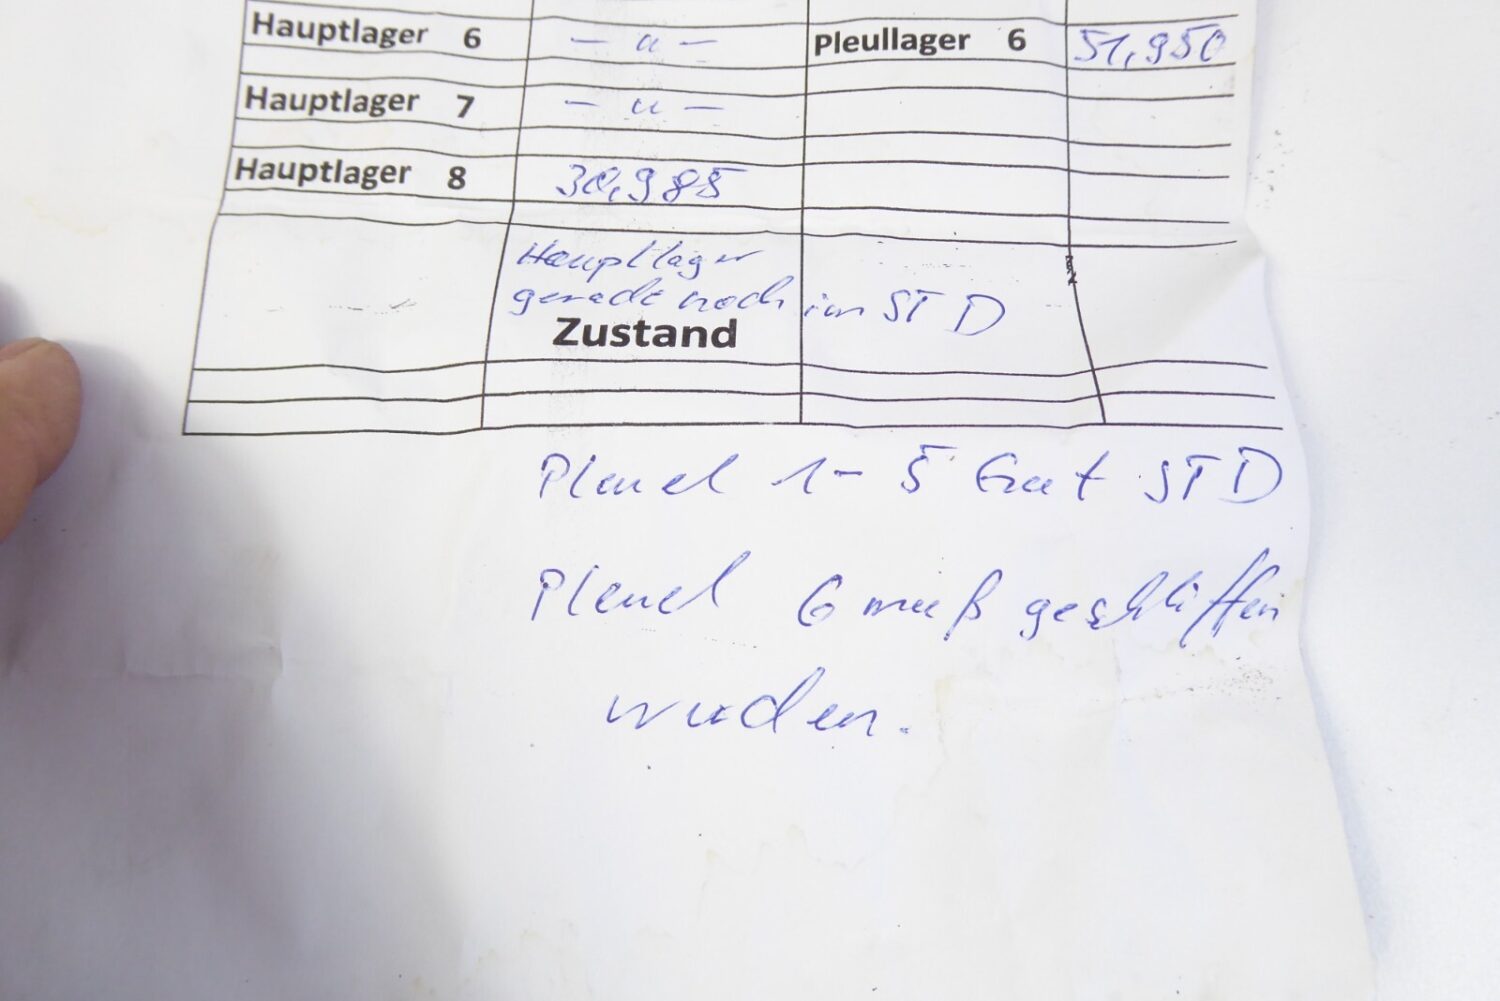 Hauptlager 6 — u — Pleullager 6 51,950
Hauptlager 7 — u —
Hauptlager 8 30,985
Hauptlager
gerade noch im STD
Zustand
Pleuel 1-5 Gut STD
Pleuel 6 muß geschliffen
wuden.